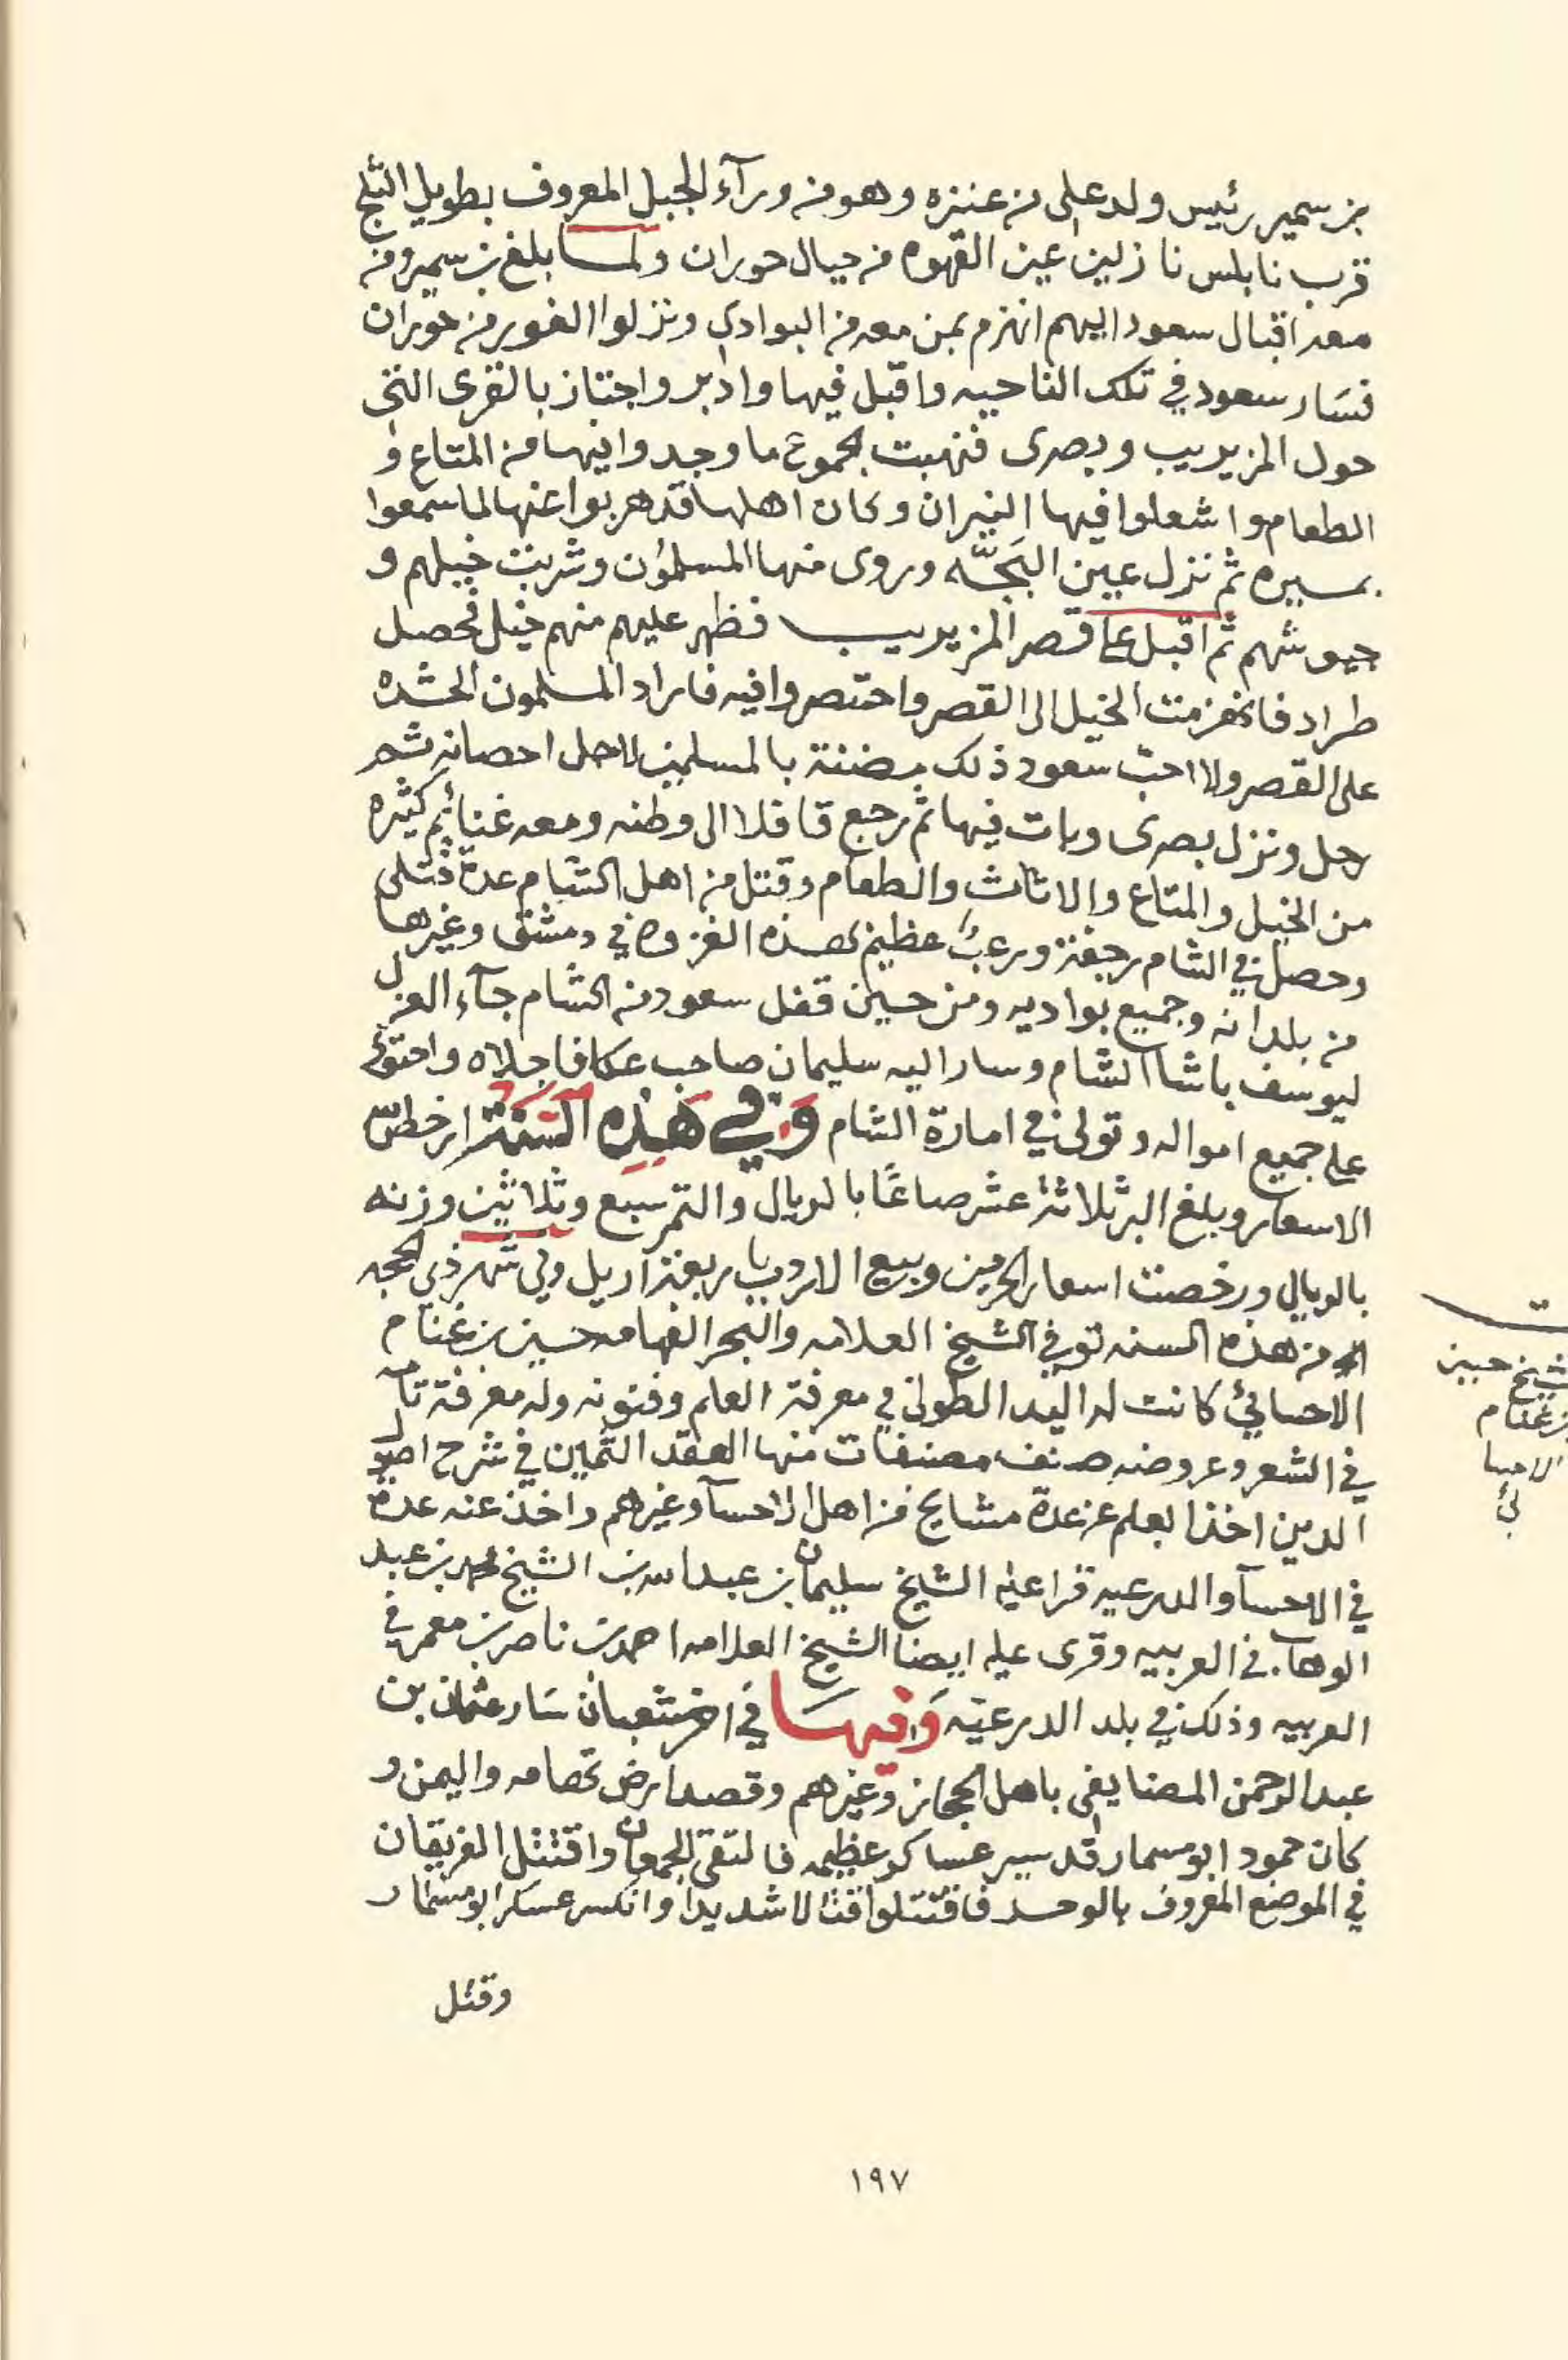 بن سمير رئيس ولد علي من عنزه وهو من ورآء الجبل المعروف بطويل الثلج
قرب نابلس نازلين عين القهوه من حيال حوران ولما بلغ بن سمير ومن
معه اقبال سعود اليهم انهزم بمن معه من البوادي ونزلوا الغوير من حوران
فسار سعود في تلك الناحيه واقبل فيها وادبر واجتاز بالقرى التي
حول المزيريب وبصرى فنهبت الجموع ما وجدوا فيها من المتاع و
الطعام واشعلوا فيها النيران وكان اهلها قد هربوا عنها لما سمعوا
بمسيره ثم نزل عين البجه وروى منها المسلمون وشربت خيلهم و
جيوشهم ثم اقبل على قصر المزيريب فظهر عليهم منهم خيل فحصل
طراد فانهزمت الخيل الى القصر واحتصروا فيه فاراد المسلمون الحشده
على القصر ولا احب سعود ذلك مضنة بالمسلمين لاجل احصانه ثم
رحل ونزل بصرى وبات فيها ثم رجع قافلا الى وطنه ومعه غنائم كثيره
من الخيل والمتاع والاثاث والطعام وقتل من اهل الشام عدة قتلى
وحصل في الشام رجفة ورعب عظيم بهذه الغزوه في دمشق وغيرها
من بلدانه وجميع بواديه ومن حين قفل سعود من الشام جآء العزل
ليوسف باشا الشام وسار اليه سليمان صاحب عكا فاجلاه واحتوى
على جميع امواله وتولى في امارة الشام وفي هذه السنة ارخص
الاسعار وبلغ البر ثلاثة عشر صاعًا بالريال والتمر سبع وثلاثين وزنه
بالريال ورخصت اسعار الحرمين وبيع الاردب باربعة اريل وفي شهر ذي الحجه
من هذه السنه توفي الشيخ العلامه والبحر الفهامه حسين بن غنام
الاحسائي كانت له اليد الطولى في معرفة العلم وفنونه وله معرفة تامه
في الشعر وعروضه صنف مصنفات منها العقد الثمين في شرح اصول
الدين اخذ العلم عن عدة مشايخ من اهل الاحسآ وغيرهم واخذ عنه عدة
في الاحسآ والدرعيه قرا عليه الشيخ سليمان بن عبدالله بن الشيخ محمد بن عبد
الوهاب في العربيه وقرى عليه ايضا الشيخ العلامه احمد بن ناصر بن معمر في
العربيه وذلك في بلد الدرعيّه وفيها في اخر شعبان سار عثمان بن
عبدالرحمن المضايفي باهل الحجاز وغيرهم وقصد ارض تهامه واليمن و
كان حمود ابو مسمار قد سير عساكر عظيمه فالتقى الجمعان واقتتل الفريقان
في الموضع المعروف بالوحد فاقتتلوا قتالا شديدا وانكسر عسكر ابو مسمار
وقتل
شيخ حسين
بن غنام
الاحسا
ئي
١٩٧